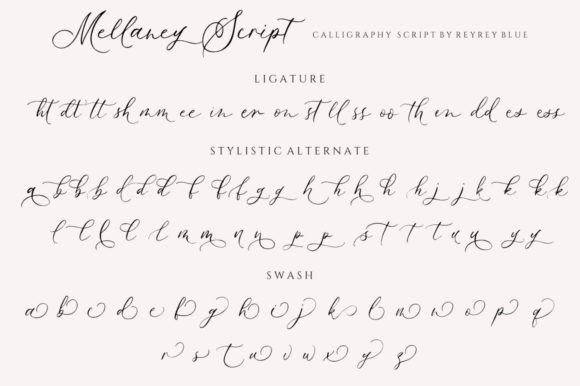 Mellaney Script CALLIGRAPHY SCRIPT BY REYREY BLUE
LIGATURE
ht dt tt sh mm ee in er on st ll ss oo th en dd es ess
STYLISTIC ALTERNATE
a b b b d d f f f g g h h h h h j j k k k k
l l l l l m m n n p p s t t t u y y y
SWASH
a b c d e f g h i j k l m n o p q
r s t u v w x y z